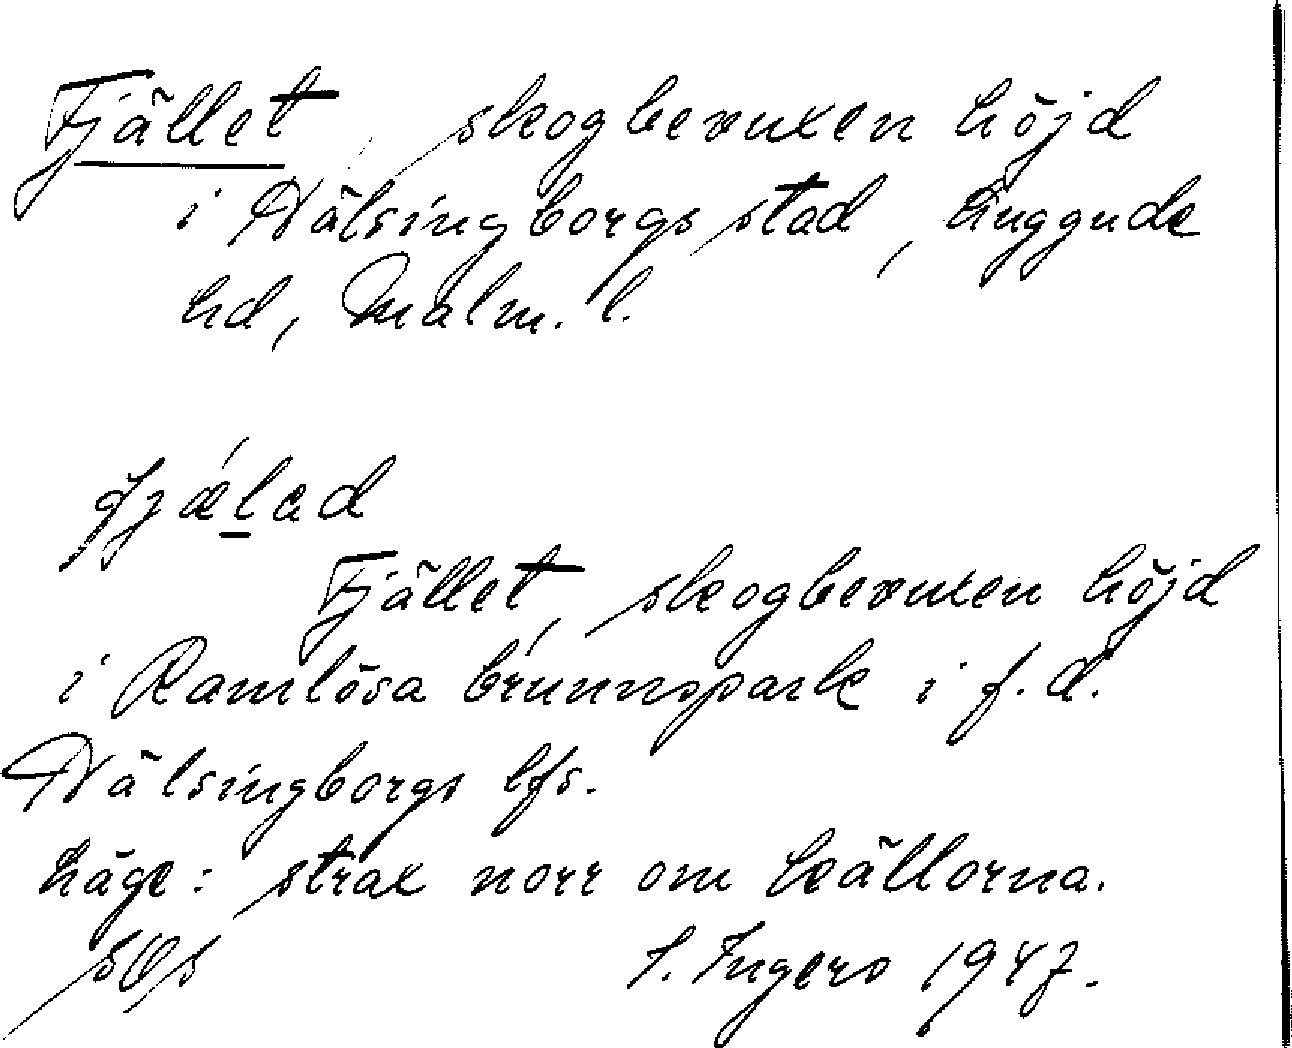 Fjället, skogbevuxen höjd
i Hälsingborgs stad, Luggude
hd, Malm. l.
Fjället, skogbevuxen höjd
i Ramlösa brunnspark i f. d.
Hälsingborgs lfs.
Läge: strax norr om källorna.
S. Ingers 1947.